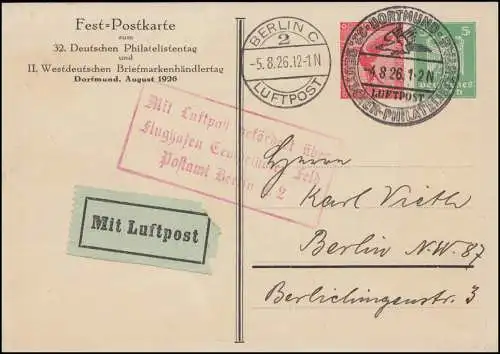 Fest=Postkarte
zum
32. Deutschen Philatelistentag
und
II. Westdeutschen Briefmarkenhändlertag
Dortmund, August 1926
BERLIN C
2
-5.8.26.12-1N
LUFTPOST
DORTMUND
-4.8.26.1-2N
LUFTPOST
5
Mit Luftpost befördert über
Flughafen Tempelhofer Feld
Postamt Berlin C 2
Mit Luftpost
Herrn
Karl Vieth
Berlin N.W. 87
Berlichingenstr. 3